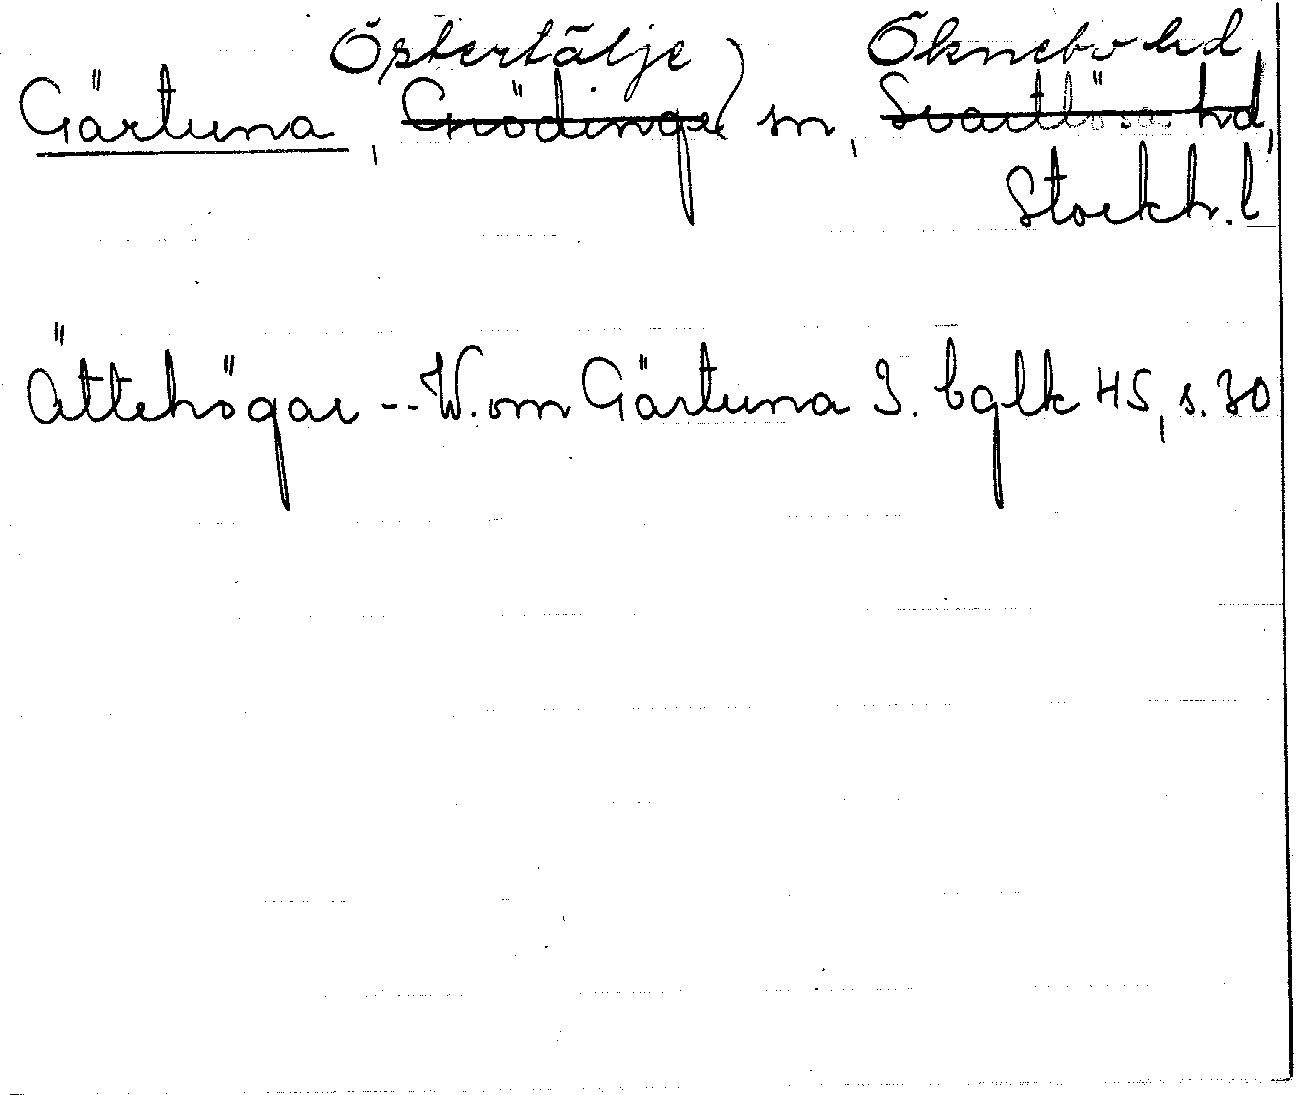 Östertälje Öknebo hd
Gärtuna, Grödinge sn, Svartlösa hd,
Stockh. l
Ättehögar -- W. om Gärtuna J. bglk 45, s. 30